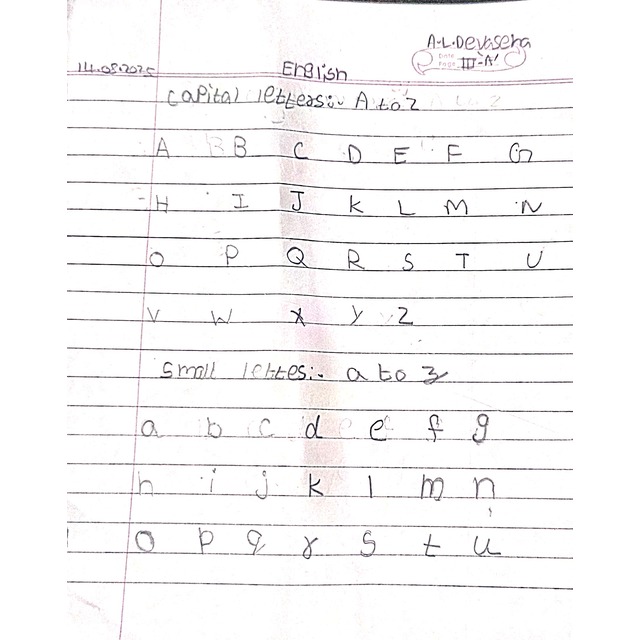 A-L.Devasena
Date
Page III-'A'
14.08.2025 English
Capital letters:- A to Z
A B C D E F G
H I J K L M N
O P Q R S T U
V W X Y Z
Small lettes:- a to z
a b c d e f g
h i j k l m n
o p q r s t u